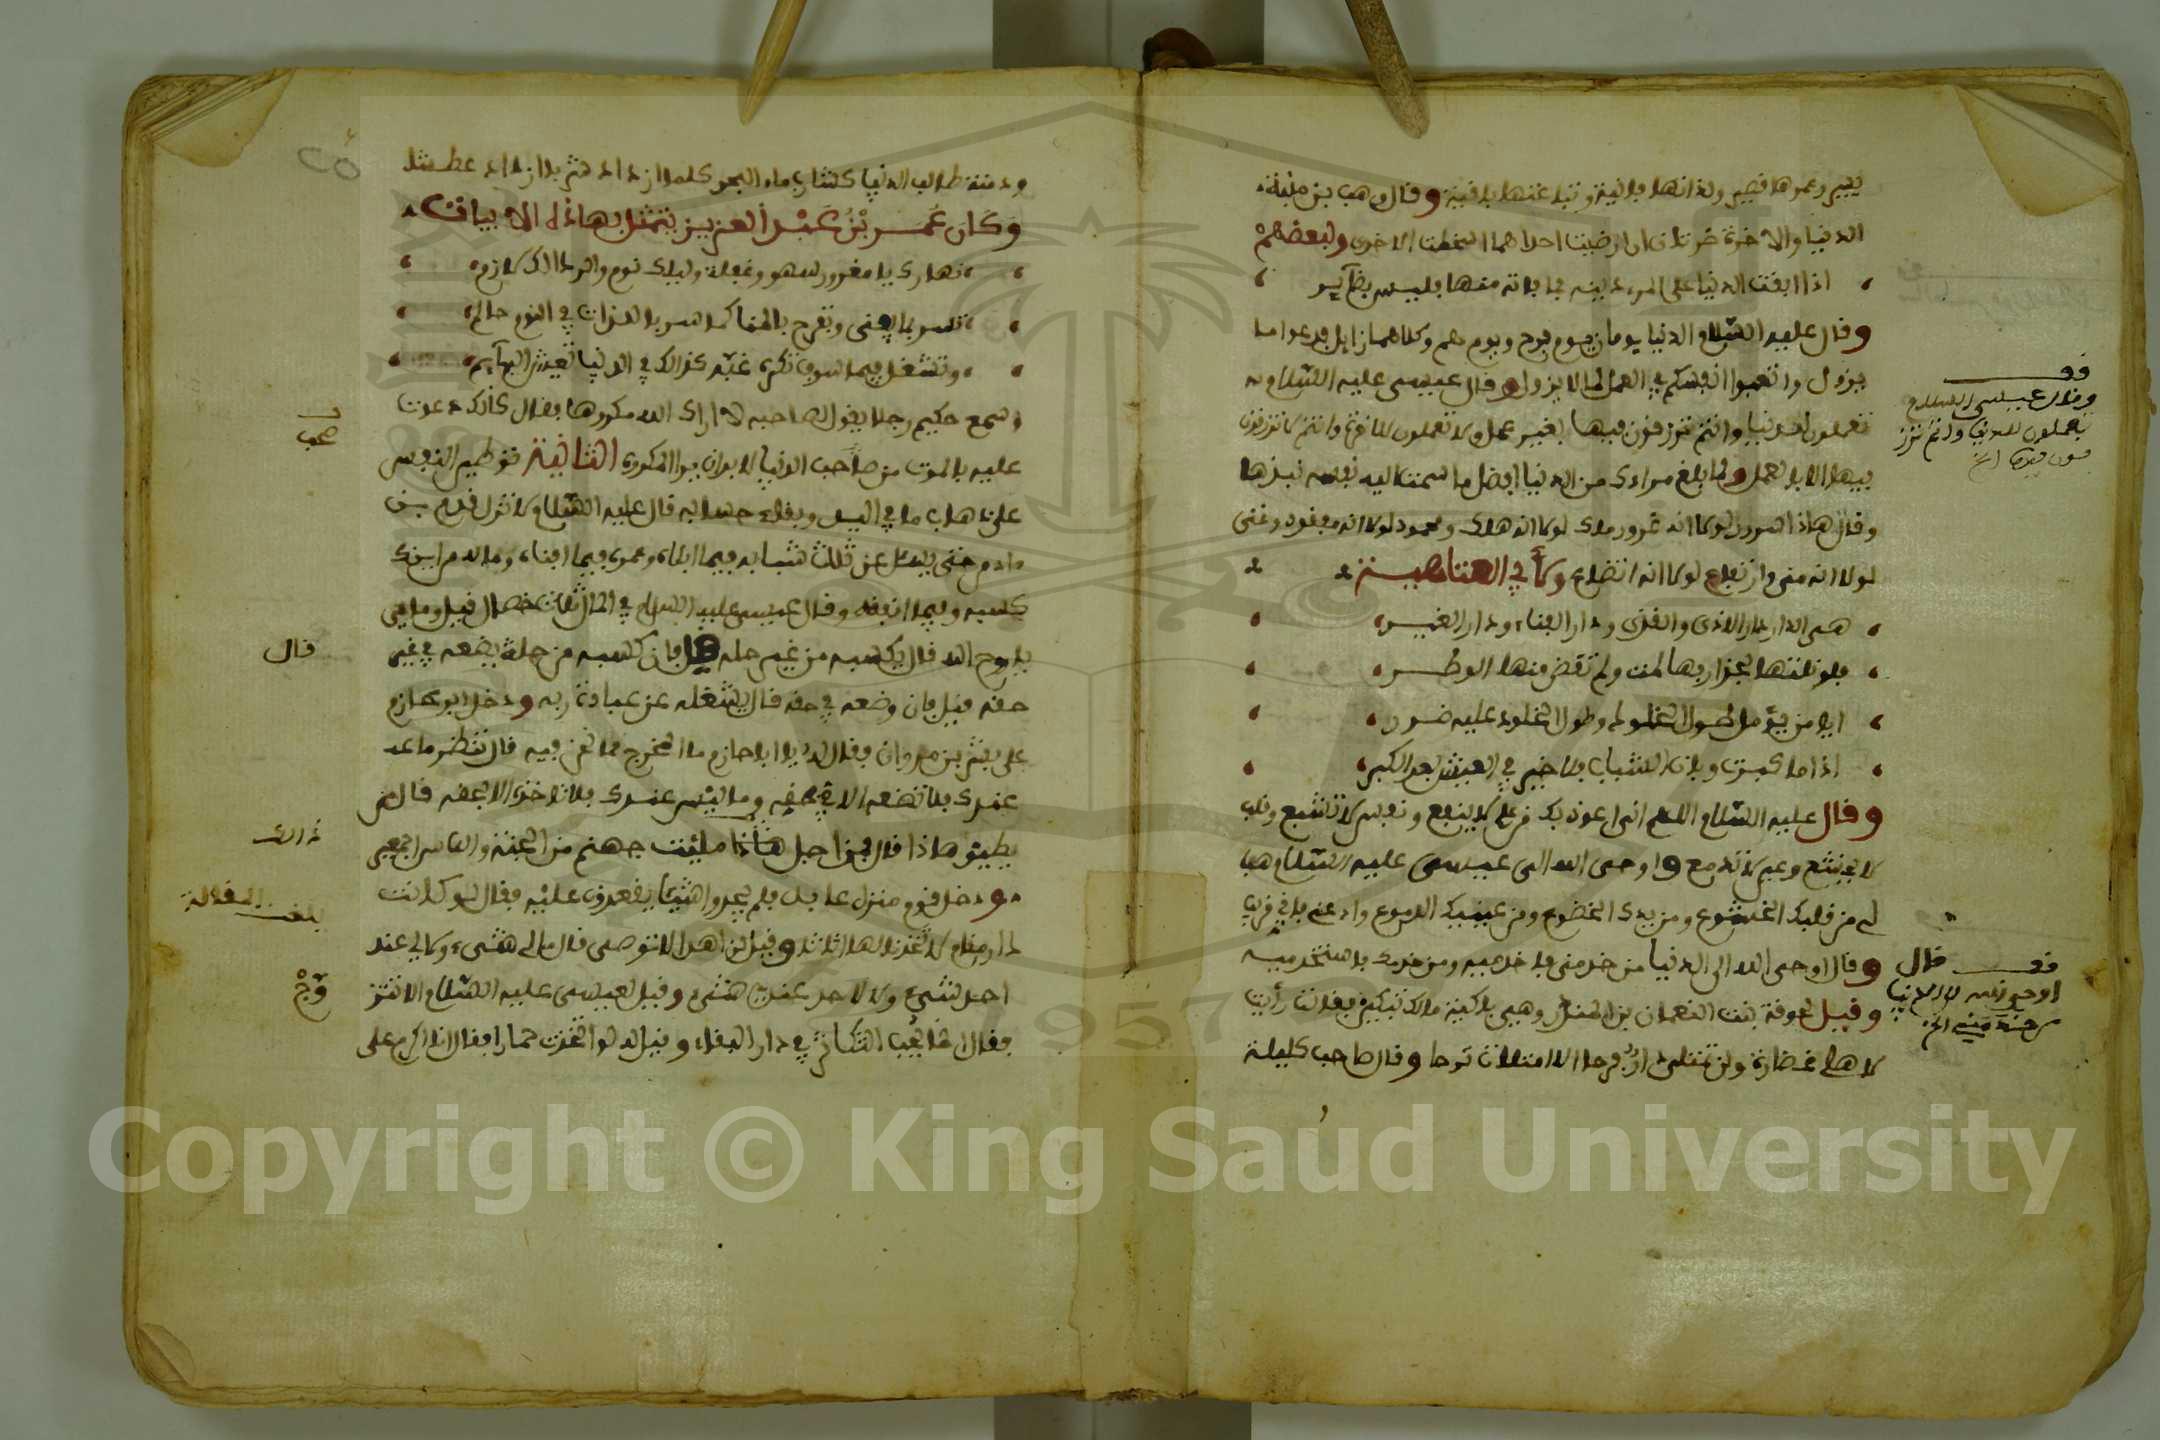 يسير وعمرها قصير ولذاتها فانية وتبعاتها باقية وقال وهب بن منبه
الدنيا والاخرة ضرتان ان ارضيت احداهما اسخطت الاخرى ولبعضهم
اذا ابقت الدنيا على المرء دينه فما فاته منها فليس بضآير
وقال عليه السلام الدنيا يومان يوم فرح ويوم هم وكلاهما زايل فدعوا ما
يزول واتعبوا انفسكم في العمل لما لا يزول وقال عيسى عليه السلام
تعملون للدنيا وانتم ترزقون فيها بغير عمل ولا تعملون للاخرة وانتم لا ترزقون
فيها الا بالعمل ولما بلغ مرادى من الدنيا افضل ما سمت اليه نفسه نبذها
وقال هاذا سرور لولا انه غرور وملك لولا انه هلك ومحمود لولا انه مفقود وغنى
لولا انه منى وارتفاع لولا انه اتضاع ولأبي العتاهية
هي الدار دار الاذى والقذى ودار الفناء ودار الغير
فلو نلتها بحذافيرها لمت ولم تقض منها الوطر
ايا من يؤمل طول الخلود وطول الخلود عليه ضرر
اذا ما كبرت وبان الشباب فلا خير في العيش بعد الكبر
وقال عليه السلام اللهم انى اعوذ بك من علم لا ينفع ونفس لا تشبع وقلب
لا يخشع وعين لا تدمع واوحى الله الى عيسى عليه السلام هب
لى من قلبك الخشوع ومن يدك الخضوع ومن عينيك الدموع وادعنى فانى قريب
وقال اوحى الله الى الدنيا من خدمنى فاخدميه ومن خدمك فاستخدميه
وقيل لحرقة بنت النعمان بن المنذر وهي باكية مالك تبكين فقالت رأيت
لاهلى غضارة ولن تمتلئ دار فرحا الا امتلات ترحا وقال صاحب كليلة
قف
وقال عيسى السلام
تعملون للدنيا وانتم ترز
قون فيها الخ
قف قال
اوحى الله الى الدنيا
من خدمنى الخ
ودمنة طالب الدنيا كشارب ماء البحر كلما ازداد شربا ازداد عطشا
وَكَانَ عُمَر بْنُ عَبْد العزيز يتمثل بهاذه الابيات
نهارك يا مغرور سهو وغفلة وليلك نوم والردا لك لازم
تسر بما يفنى وتفرح بالمنا كما سر باللذات في النوم حالم
وتشغل فيما سوف تكره غبه كذالك في الدنيا تعيش البهآيم
وسمع حكيم رجلا يقول لصاحبه لا اراك الله مكروها فقال كانك دعوت
عليه بالموت من صاحب الدنيا لا بد ان يرا المكروه الثانية توطين النفس
على ذهاب ما في اليد وبقاء حسابه قال عليه السلام لا تزول قدم بن
ءادم حتى يسئل عن ثلث شبابه فيما ابلاه وعمره فيما افناه وماله من اين
كسبه وفيما انفقه وقال عيسى عليه السلام في المال ثلاث خصال قيل وما هي
يا روح الله قال يكسبه من غير حله قيل فان كسبه من حله يضعه في غير
حقه قيل فان وضعه في حقه قال يشغله عن عبادة ربه ودخل ابو حازم
على بشر بن مروان فقال له يا ابا حازم ما المخرج مما نحن فيه قال تنظر ما عند
عندك فلا تضعه الا في حقه وما ليس عندك فلا تاخذه الا بحقه قال من
يطيق هاذا قال فمن اجل هاذا ملئت جهنم من الجنة والناس اجمعين
ودخل قوم منزل عابد فلم يجدوا شيئا يقعدون عليه فقال لو كانت
دار مقام لاتخذنا لها اثاثا وقيل لزاهد الا توصى قال مالى شيء ولا لى عند
احد شيء ولا لاحد عندى شيء وقيل لعيسى عليه السلام الا تتز
فقال انما يحب التكاثر في دار البقاء وقيل له لو اتخذت حمارا فقال انا اكرم على
صحب
قال
ذالك
بلغت المقابلة
وج
٢٥
Copyright © King Saud University
1957